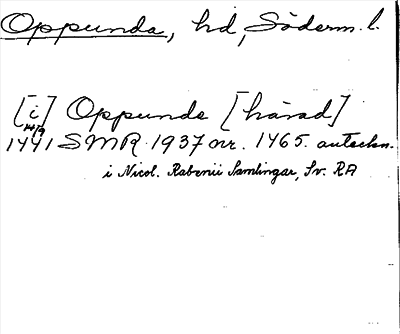 Oppunda, hd, Söderm. l.
[i] Oppunde [härad]
14/9
1441 SMR 1937 orr. 1465. anteckn.
i Nicol. Rabenii Samlingar, Sv. RA